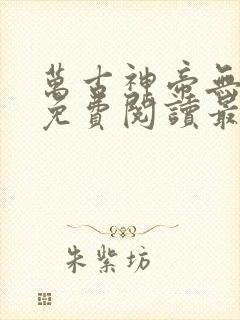 萬古神帝無
免費閱讀最
朱紫坊